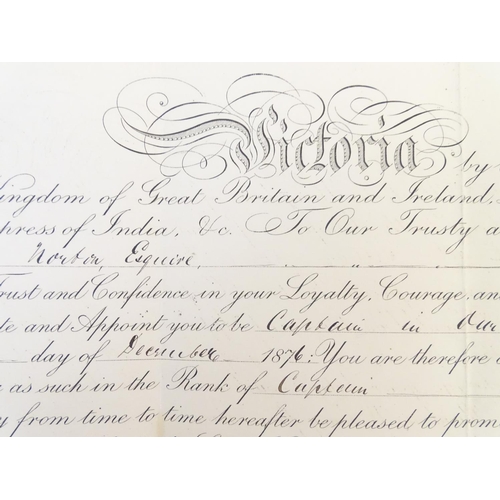 Victoria by
Kingdom of Great Britain and Ireland,
press of India, &c. To Our Trusty a
Norton, Esquire,
Trust and Confidence in your Loyalty, Courage, an
te and Appoint you to be Captain in Our
day of December 1876: You are therefore
as such in the Rank of Captain
y from time to time hereafter be pleased to prom